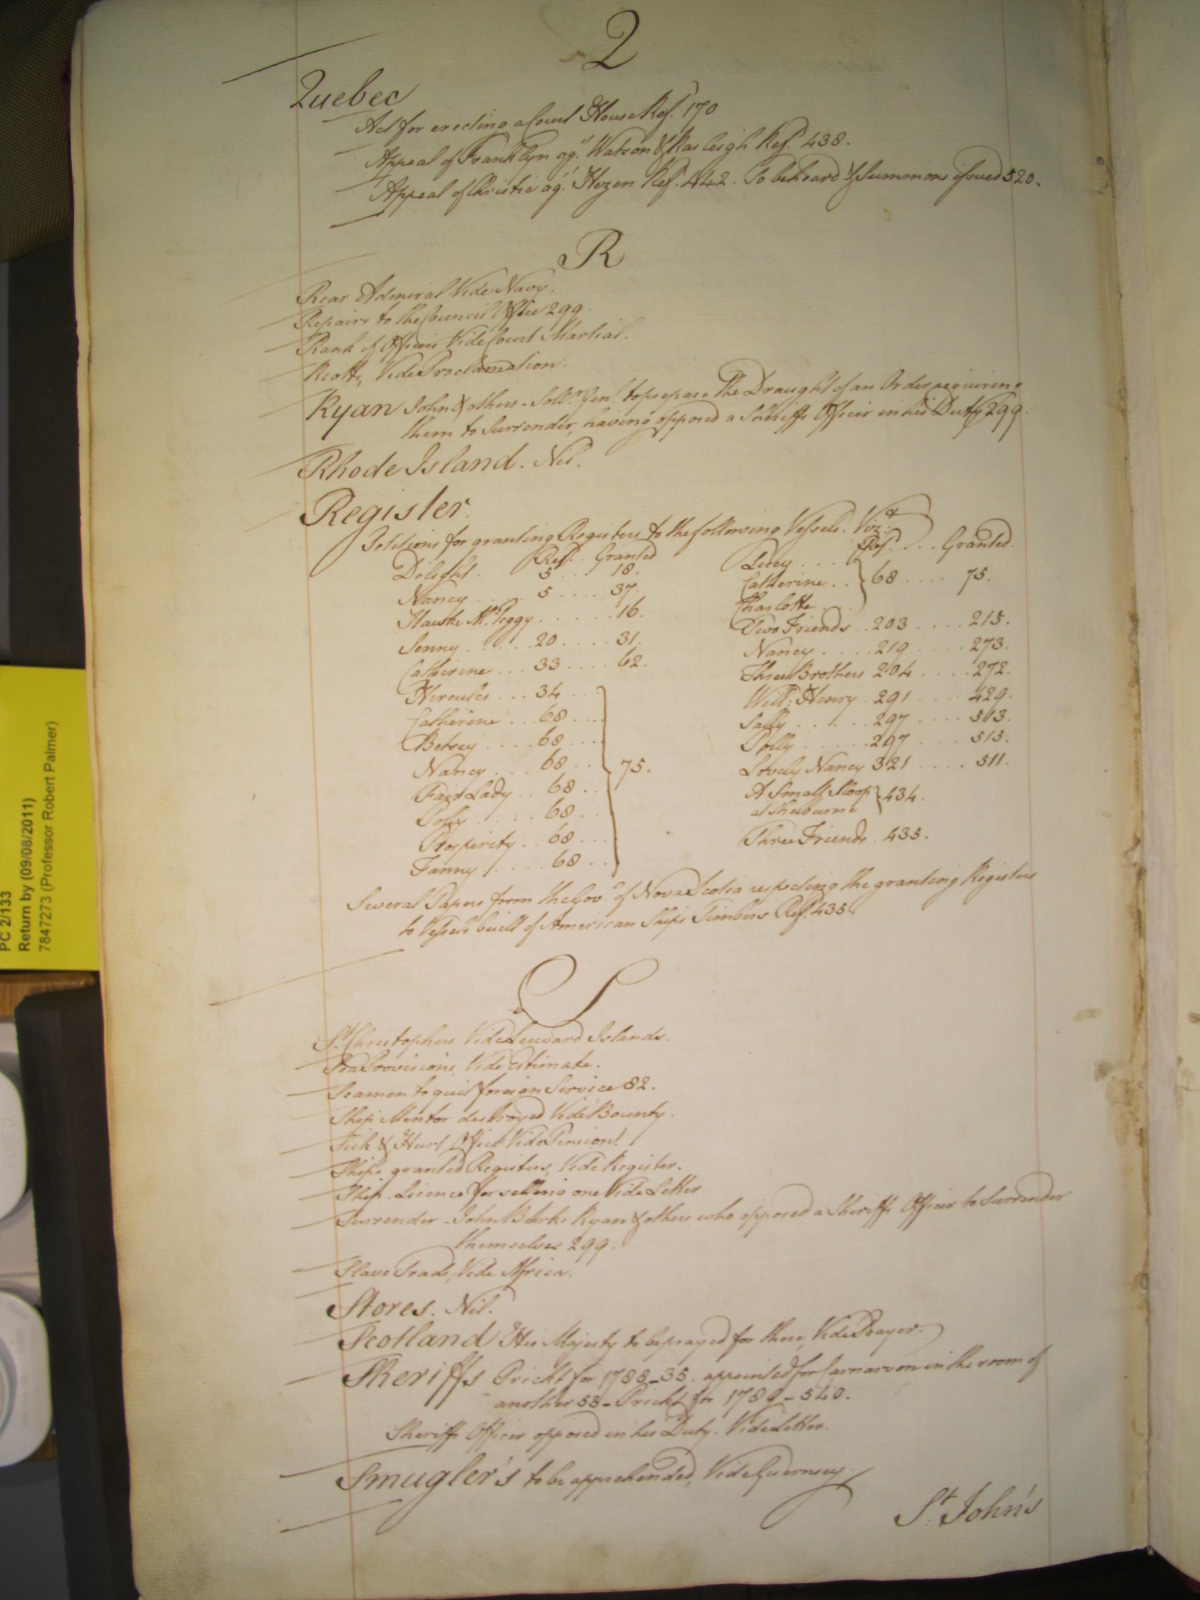 2
Quebec
Act for erecting a Court House Ref. 170
Appeal of Franklyn agt. Watson & Rasleigh Ref. 438.
Appeal of Christie agt. Hazen Ref. 442. To be heard & Summons issued 520.
R
Rear Admiral Vide Navy.
Repairs to the Council Office 299.
Rank of Officers Vide Court Martial.
Riotts, Vide Proclamation.
Ryan John & others - Sollr. Genl. to prepare the Draught of an Order requiring
them to Surrender, having opposed a Sheriffs Officer in his Duty 299.
Rhode Island. Nil.
Register.
Petitions for granting Registers to the following Vessels. Vizt.
Ref. Granted
Delight. 5 .... 18.
Nancy .... 5 .... 37.
Peggy ...... 16.
Jenny ..... 20 .... 31.
Catherine ... 33 .... 62.
Hercules ... 34 ..
Catherine ... 68 ...
Betsey .... 68 ...
Nancy .... 68 ... 75.
Fair Lady .. 68 ..
Polly ..... 68 ..
Prosperity .. 68 ...
Fanny .... 68 ..
Ref. .... Granted
Lucy ....
Catherine .. 68 .... 75.
Charlotte ..
Two Friends .. 203 .... 215.
Nancy .... 219 .... 273.
Three Brothers 204 .... 272.
Willm. Henry 291 .... 429.
Sally ..... 297 .... 513.
Polly ..... 297 .... 515.
Lovely Nancy 321 .... 511.
A Small Sloop
at Shelburne 434.
Three Friends. 435.
Several Papers from the Govr. of Nova Scotia respecting the granting Registers
to Vessels built of American Ships Timbers Ref. 435.
S
St. Christophers Vide Leeward Islands.
Sea Provisions, Vide Estimate.
Seamen to quit foreign Service 82.
Ship Mentor destroyed Vide Bounty.
Sick & Hurt Office Vide Pension.
Ships granted Registers, Vide Register.
Ship. Licence for selling one Vide Letter.
Surrender - John Ryan & others who opposed a Sheriffs Officer to Surrender
themselves 299.
Slave Trade, Vide Africa.
Stores. Nil.
Scotland His Majesty to be prayed for there, Vide Prayer.
Sheriffs Prickt for 1788 - 35. appointed for Carnarvon in the room of
another 53 - Prickt for 1789 - 540.
Sheriffs Officer opposed in his Duty. Vide Letter.
Smugler's to be apprehended, Vide Guernsey.
St. John's
PC 2/133
Return by (09/08/2011)
7847273 (Professor Robert Palmer)